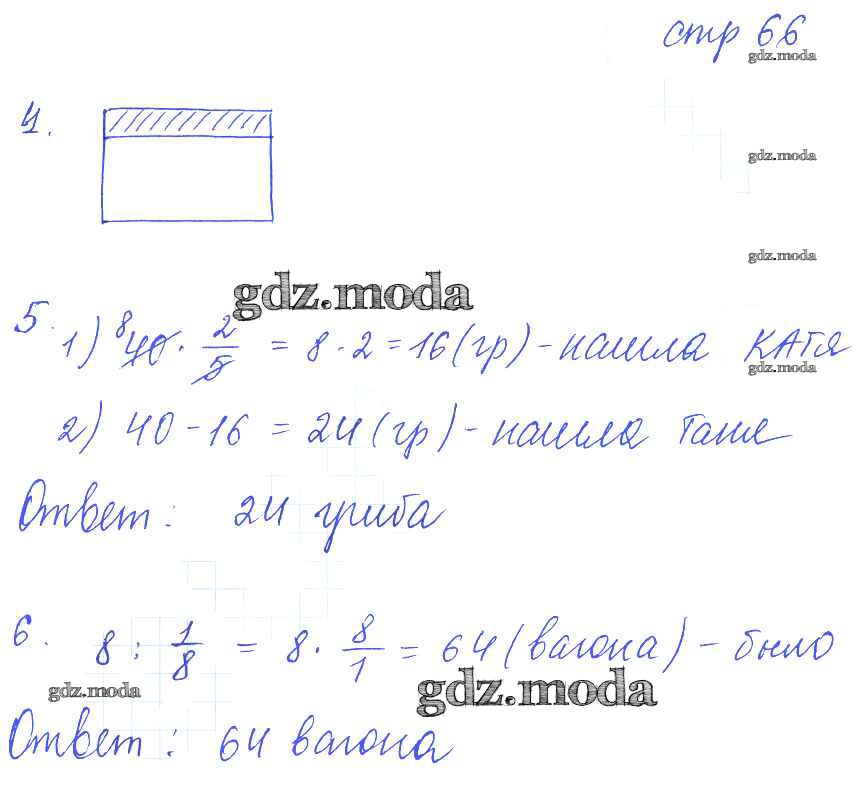 стр 66
gdz.moda
4.
gdz.moda
gdz.moda
gdz.moda
5. 1) 8 40 · 2/5 = 8 · 2 = 16 (гр) - нашла КАТЯ
gdz.moda
2) 40 - 16 = 24 (гр) - нашла Таня
Ответ: 24 гриба
6. 8 : 1/8 = 8 · 8/1 = 64 (вагона) - было
gdz.moda
gdz.moda
Ответ: 64 вагона